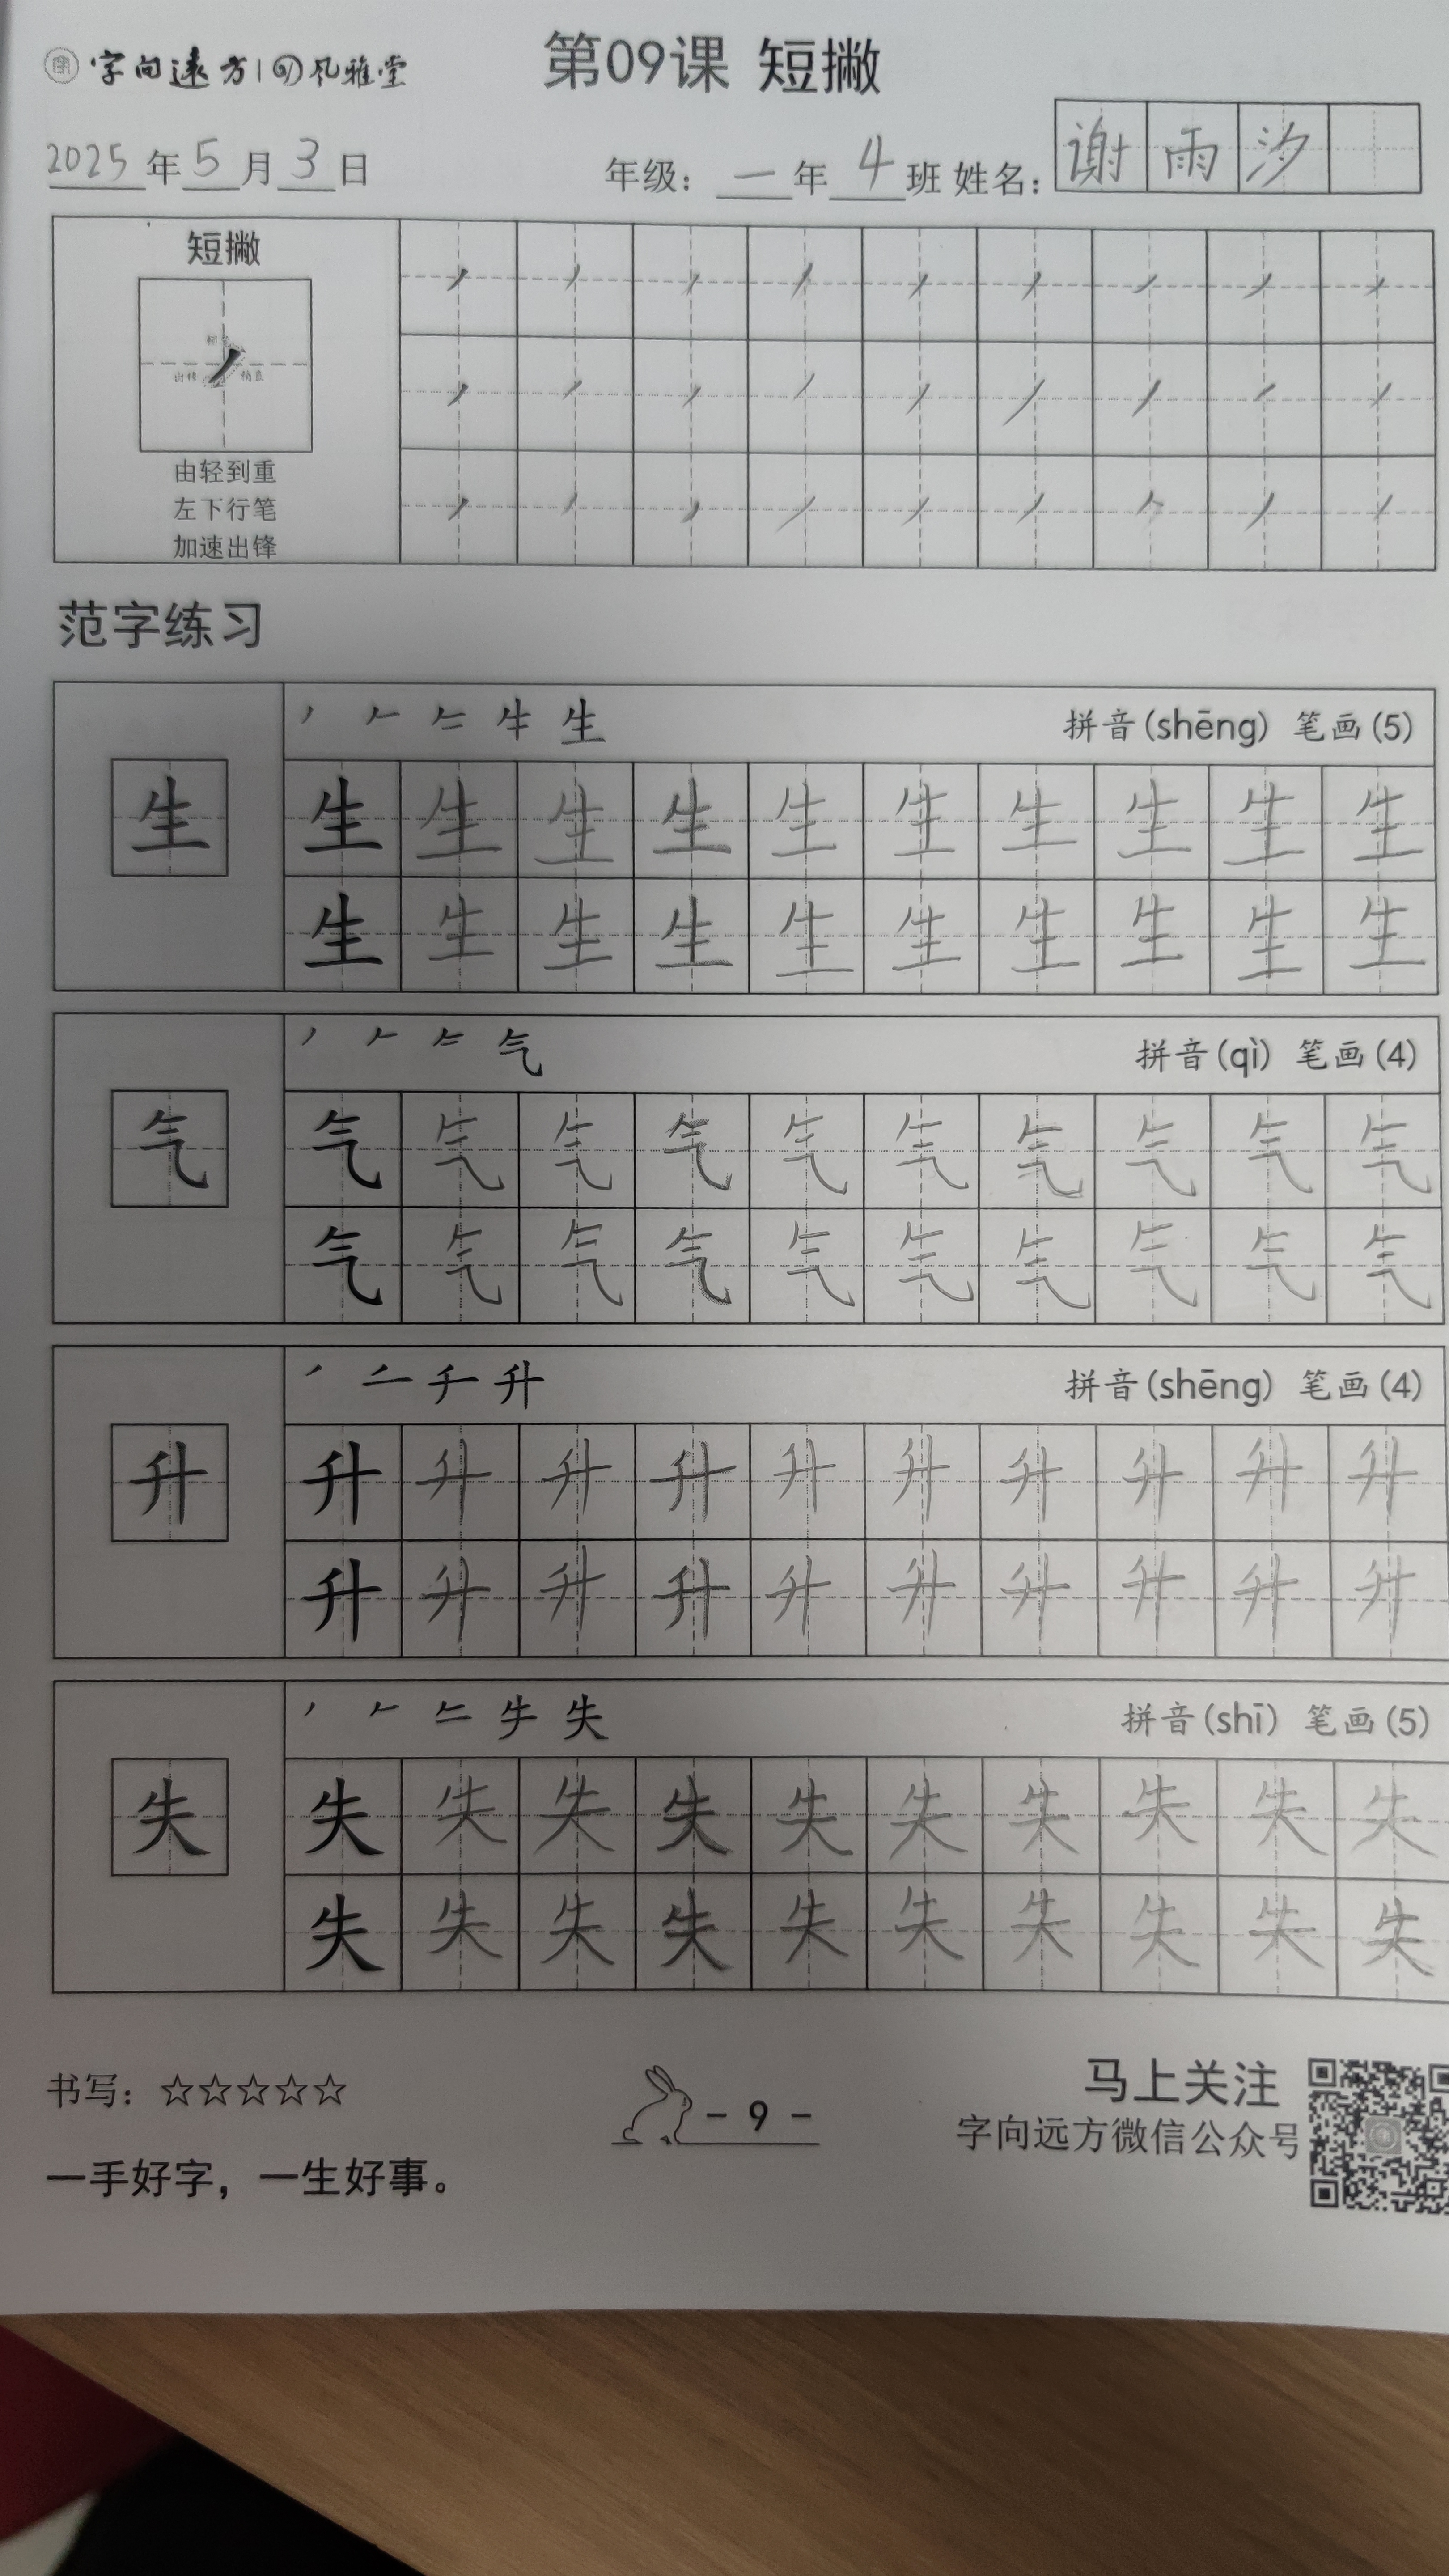 字向远方 | 风雅堂
第09课 短撇
2025年5月3日 年级：一年4班 姓名：谢雨汐
短撇
由轻到重
左下行笔
加速出锋
范字练习
生 拼音(shēng) 笔画(5)
生 生 生 生 生 生 生 生 生 生 生
生 生 生 生 生 生 生 生 生 生
气 拼音(qì) 笔画(4)
气 气 气 气 气 气 气 气 气 气 气
气 气 气 气 气 气 气 气 气 气
升 拼音(shēng) 笔画(4)
升 升 升 升 升 升 升 升 升 升 升
升 升 升 升 升 升 升 升 升 升
失 拼音(shī) 笔画(5)
失 失 失 失 失 失 失 失 失 失 失
失 失 失 失 失 失 失 失 失 失
书写：☆☆☆☆☆
- 9 -
马上关注
字向远方微信公众号
一手好字，一生好事。